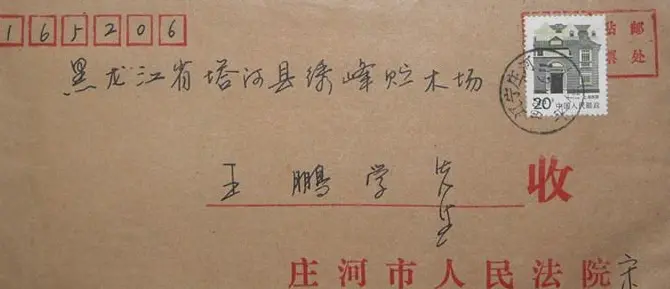 165206
贴邮
票处
20分
中国人民邮政
黑龙江省塔河县绣峰贮木场
王鹏学先生
收
庄河市人民法院宋